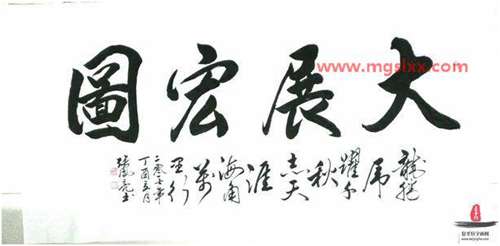 大展宏圖
龍騰
虎
躍千
秋
志天
涯
海角
萬
里行
二零一七年
丁酉五月
书
www.mgslxx.com